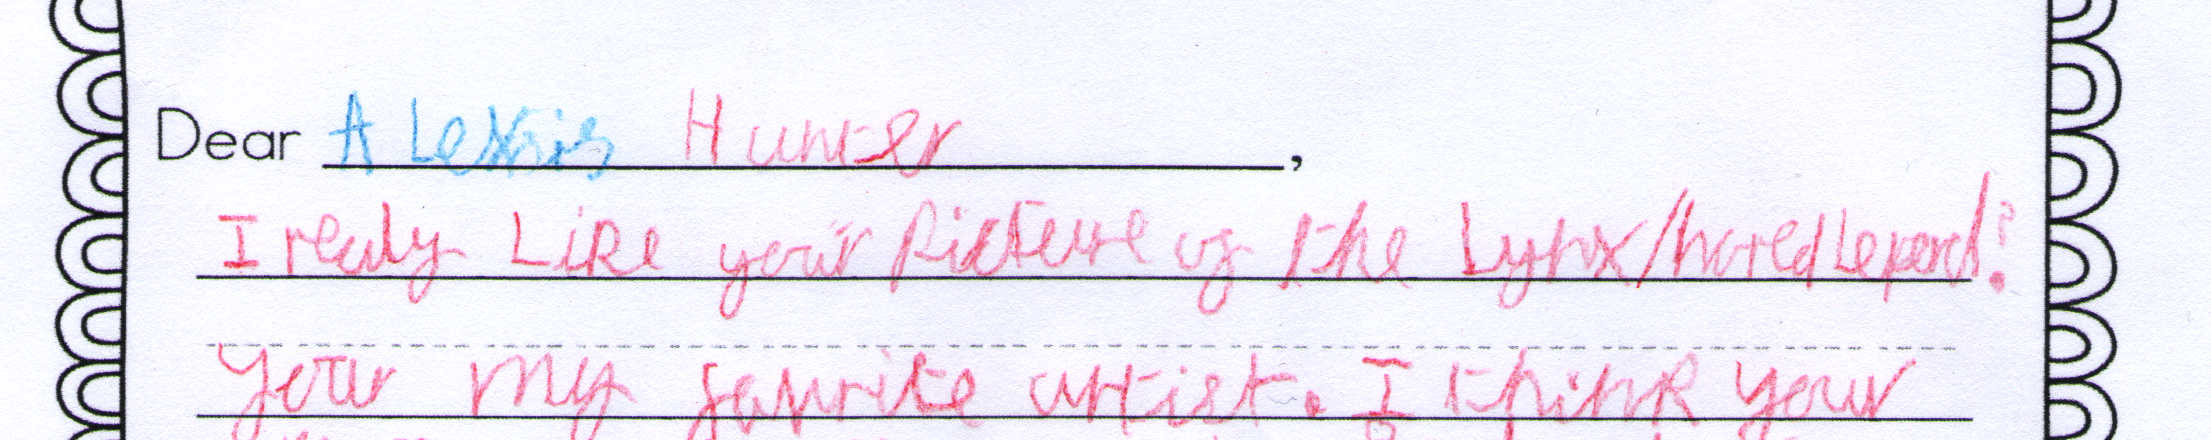 Dear ALexsis Hunter,
I realy Like your Picture of the Lynx/hored Leperd!
your my favrite artist. I think your